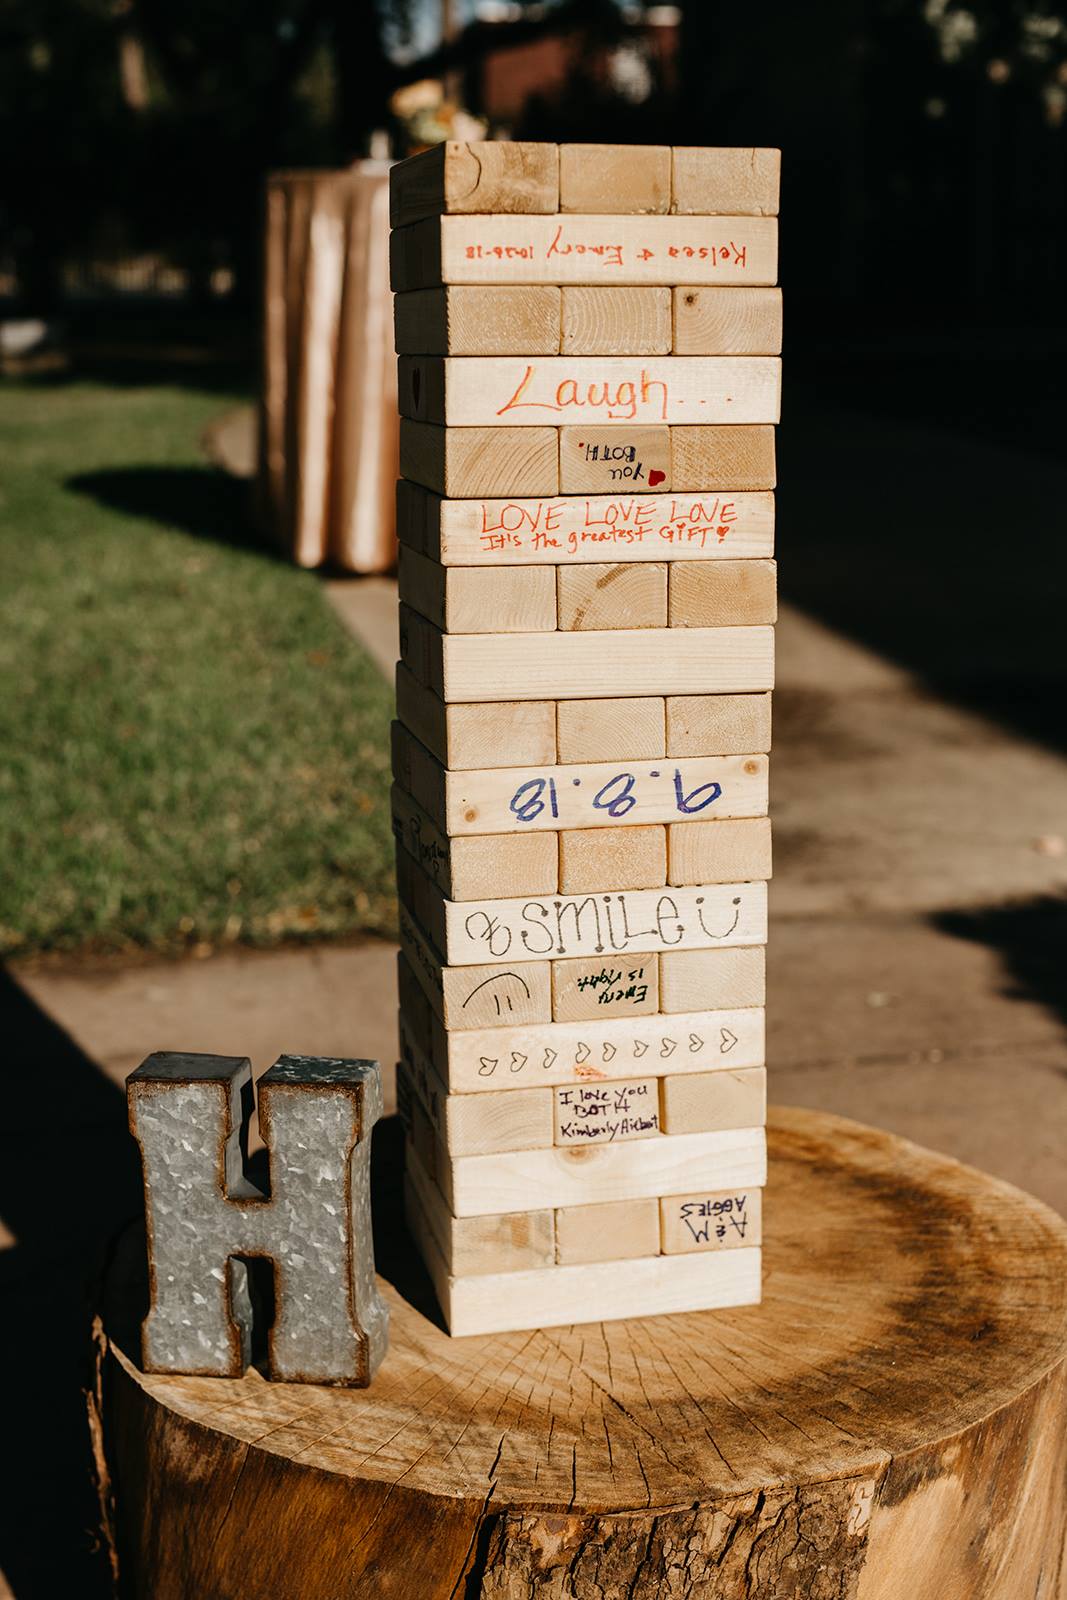 Kelsea & Emery 10-26-18
Laugh...
YOU
BOTH.
LOVE LOVE LOVE
It's the greatest GIFT
9.8.18
SMILE
Emery
is right
I love you
BOTH
Kimberly
A&M
AGGIES
H